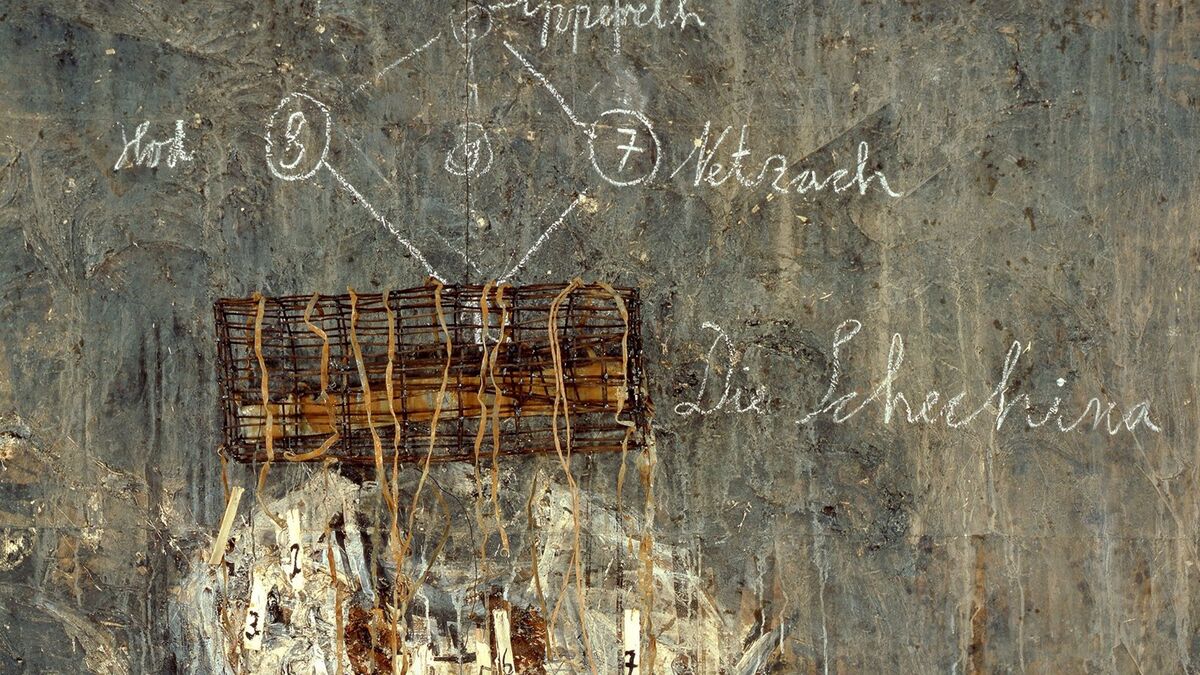 Hod 8 9 7 Netzach
Die Schechina
2
3
6 7